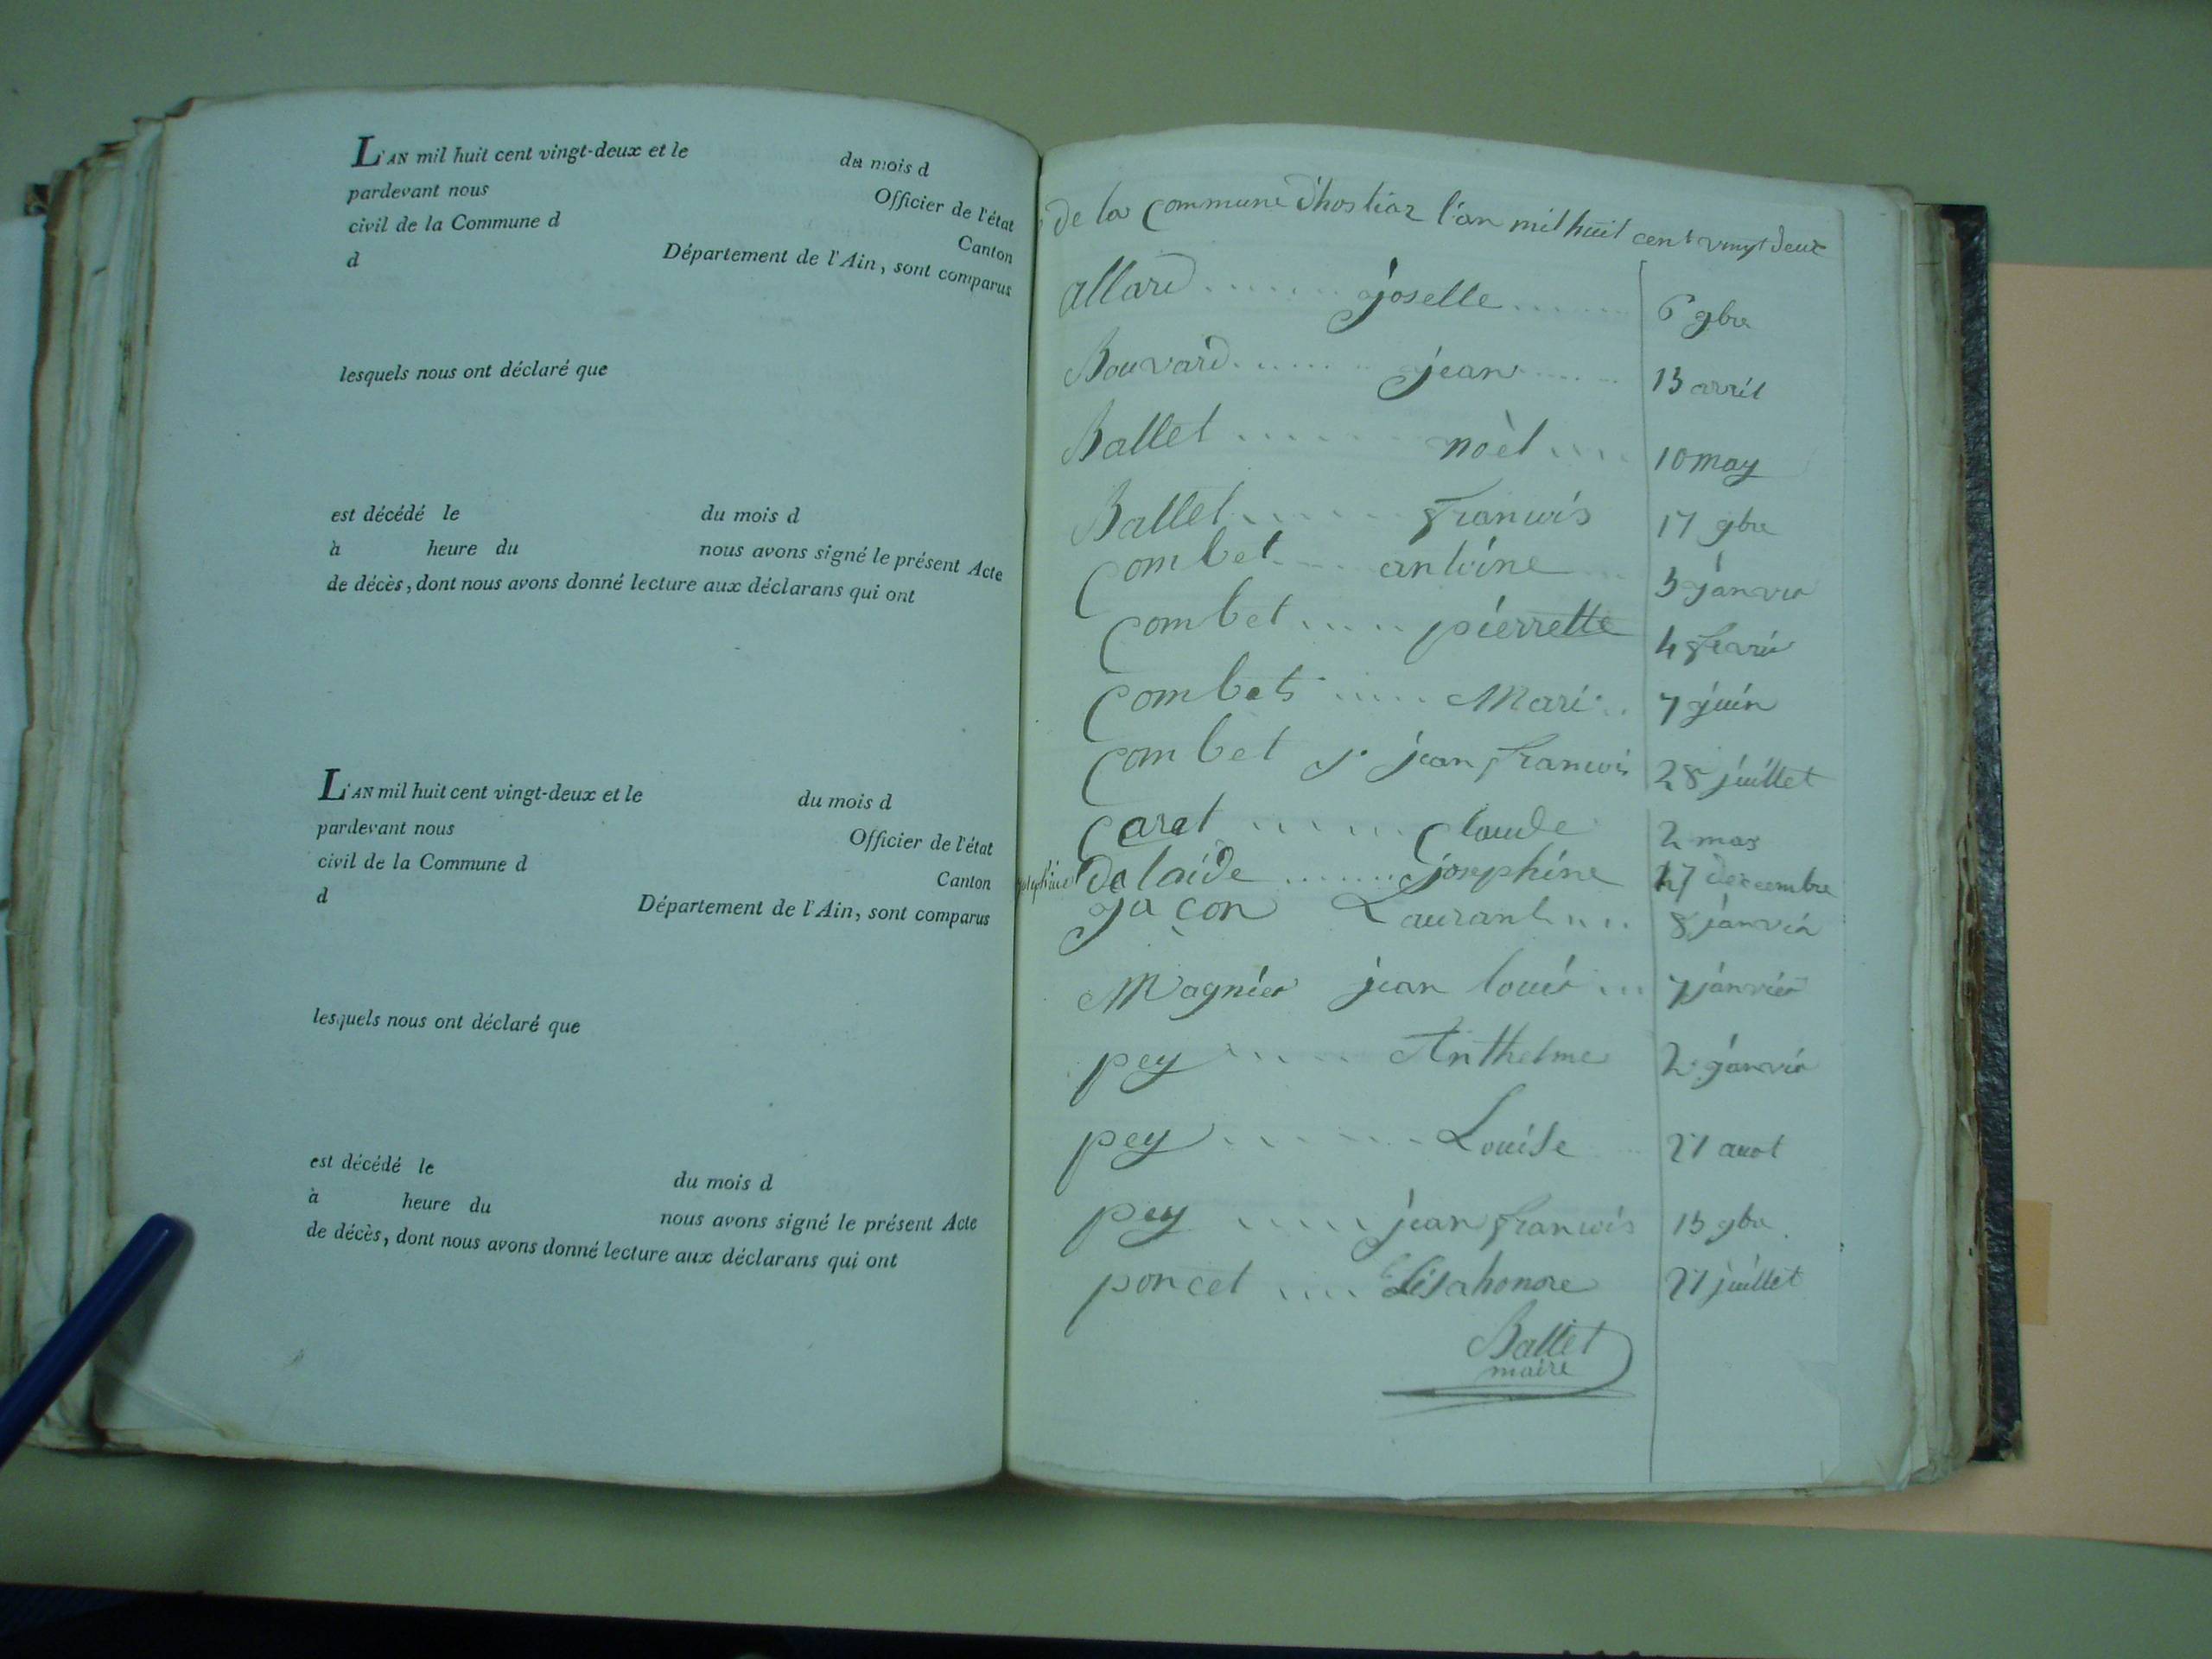 L'AN mil huit cent vingt-deux et le du mois d
pardevant nous Officier de l'état
civil de la Commune d Canton
d Département de l'Ain, sont comparus
lesquels nous ont déclaré que
est décédé le du mois d
à heure du nous avons signé le présent Acte
de décès, dont nous avons donné lecture aux déclarans qui ont
L'AN mil huit cent vingt-deux et le du mois d
pardevant nous Officier de l'état
civil de la Commune d Canton
d Département de l'Ain, sont comparus
lesquels nous ont déclaré que
est décédé le du mois d
à heure du nous avons signé le présent Acte
de décès, dont nous avons donné lecture aux déclarans qui ont
de la Commune d'hostiaz l'an mil huit cent vingt deux
allard ....... joselle ....... 6 9bre
Bouvard ....... jean ..... 13 avril
Ballet ....... noèl .... 10 may
Ballet ....... francois 17 9bre
Combet .... antoine 3 janvier
Combet ..... pierrette 4 
Combet ..... Marie .. 7 juin
Combet jean francois 28 juillet
Caret ...... Claude 2 mas
Delaide ....... josephine 17 decembre
jacon Laurant .... 8 janvier
Magnier jean louis ... 7 janvier
pey ..... Anthelme 2 janvier
pey ....... Louise 21 auot
pey ..... jean francois 13 9bre
poncet .... Elisahonore 21 juillet
Ballet
maire